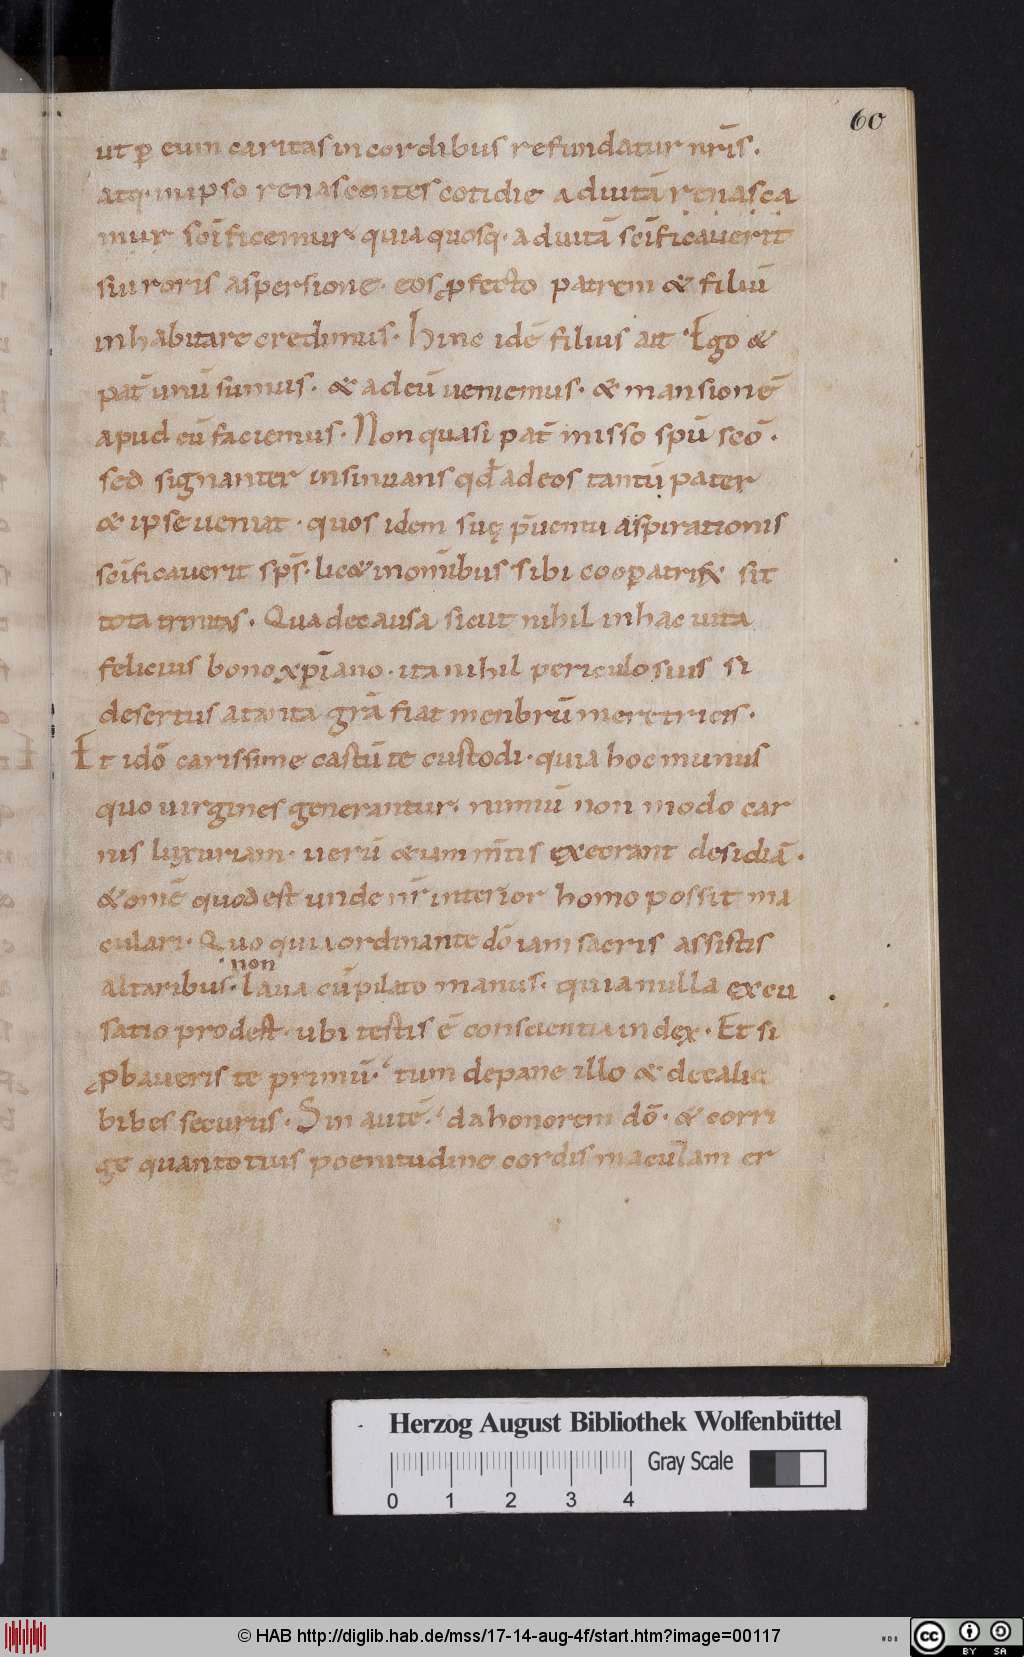 60
ut ꝑ eum caritas in cordibus refundatur nr̄is.
atq; in ipso renascentes cotidie ad uitā renasca
mur sc̄ificemur. quia quosq; ad uitā sc̄ificauerit
sui roris aspersione. eos ꝓfecto patrem & filiū
inhabitare credimus. Hinc idē filius ait. Ego &
pat̄ unū sumus. & ad eū ueniemus. & mansionē
apud eū faciemus. Non quasi pat̄ misso spū scō.
sed signanter insinuans qđ ad eos tantū pater
& ipse ueniat. quos idem suę p̄uentu aspirationis
sc̄ificauerit sp̄s. lic& in omībus sibi cooperatrix sit
tota trinitas. Qua de causa sicut nihil in hac uita
felicius bono xp̄iano. ita nihil periculosius si
desertus a tanta grā fiat menbrū meretricis.
Et idō carissime castū te custodi. quia hoc munus
quo uirgines generantur. nimiū non modo car
nis luxuriam. uerū &iam m̄tis execrant desidiā.
& omē quod est unde nr̄ interior homo possit ma
culari. Quo qui iordinante dō iam sacris assistis
non
altaribus. laua cū pilato manus. quia nulla excu
satio prodest. ubi testis ē conscientia index. Et si
ꝓbaueris te primū. tum de pane illo & de calic
bibes securus. Sin autē. da honorem dō. & corri
ge quantotius poenitudine cordis maculam cr
Herzog August Bibliothek Wolfenbüttel
Gray Scale
0 1 2 3 4
© HAB http://diglib.hab.de/mss/17-14-aug-4f/start.htm?image=00117
WDB
cc BY SA